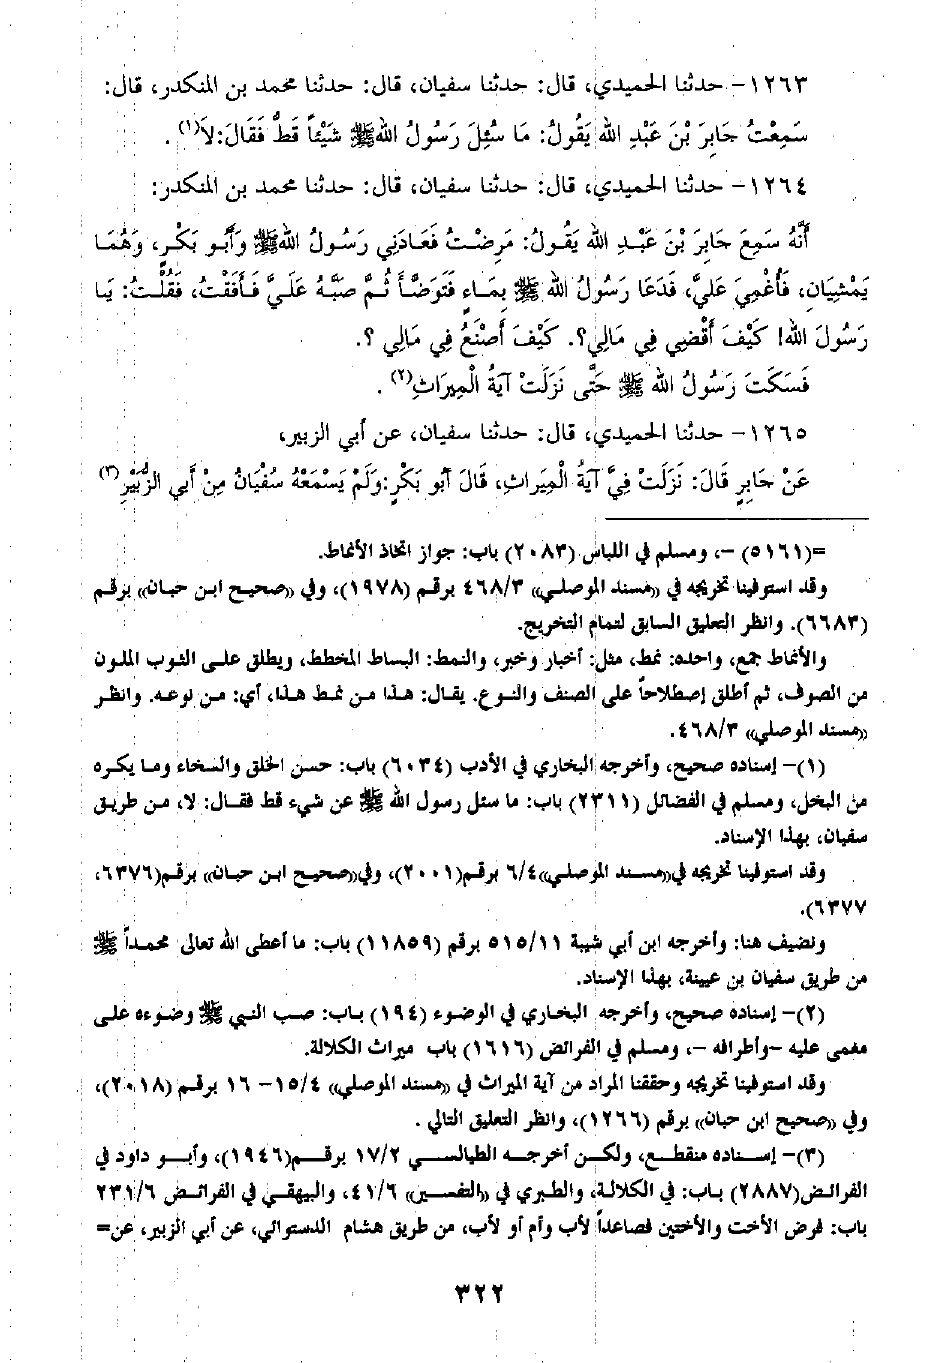 ١٢٦٣- حدثنا الحميدي، قال: حدثنا سفيان، قال: حدثنا محمد بن المنكدر، قال:
سَمِعْتُ جَابِرَ بْنَ عَبْدِ اللهِ يَقُولُ: مَا سُئِلَ رَسُولُ اللهِ ﷺ شَيْئاً قَطُّ فَقَالَ: لاَ(١) .
١٢٦٤- حدثنا الحميدي، قال: حدثنا سفيان، قال: حدثنا محمد بن المنكدر:
أَنَّهُ سَمِعَ جَابِرَ بْنَ عَبْدِ اللهِ يَقُولُ: مَرِضْتُ فَعَادَنِي رَسُولُ اللهِ ﷺ وَأَبُو بَكْرٍ، وَهُمَا
يَمْشِيَانِ، فَأُغْمِيَ عَلَيَّ، فَدَعَا رَسُولُ اللهِ ﷺ بِمَاءٍ فَتَوَضَّأَ ثُمَّ صَبَّهُ عَلَيَّ فَأَفَقْتُ، فَقُلْتُ: يَا
رَسُولَ اللهِ! كَيْفَ أَقْضِي فِي مَالِي؟. كَيْفَ أَصْنَعُ فِي مَالِي ؟.
فَسَكَتَ رَسُولُ اللهِ ﷺ حَتَّى نَزَلَتْ آيَةُ الْمِيرَاثِ(٢) .
١٢٦٥- حدثنا الحميدي، قال: حدثنا سفيان، عن أبي الزبير،
عَنْ جَابِرٍ قَالَ: نَزَلَتْ فِيَّ آيَةُ الْمِيَراثِ، قَالَ أَبُو بَكْرٍ: وَلَمْ يَسْمَعْهُ سُفْيَانُ مِنْ أَبِي الزُّبَيْرِ(٣)
=(٥١٦١) -، ومسلم في اللباس (٢٠٨٣) باب: جواز اتخاذ الأنماط.
وقد استوفينا تخريجه في «مسند الموصلي» ٤٦٨/٣ برقم (١٩٧٨)، وفي «صحيح ابن حبان» برقم
(٦٦٨٣). وانظر التعليق السابق لتمام التخريج.
والأنماط جمع، واحده: نمط، مثل: أخبار وخبر، والنمط: البساط المخطط، ويطلق على الثوب الملون
من الصوف، ثم أطلق إصطلاحاً على الصنف والنوع. يقال: هذا من نمط هذا، أي: من نوعه. وانظر
«مسند الموصلي» ٤٦٨/٣.
(١)- إسناده صحيح، وأخرجه البخاري في الأدب (٦٠٣٤) باب: حسن الخلق والسخاء وما يكره
من البخل، ومسلم في الفضائل (٢٣١١) باب: ما سئل رسول الله ﷺ عن شيء قط فقال: لا، من طريق
سفيان، بهذا الإسناد.
وقد استوفينا تخريجه في«مسند الموصلي»٦/٤ برقم(٢٠٠١)، وفي«صحيح ابن حبان» برقم(٦٣٧٦،
٦٣٧٧).
ونضيف هنا: وأخرجه ابن أبي شيبة ٥١٥/١١ برقم (١١٨٥٩) باب: ما أعطى الله تعالى محمداً ﷺ
من طريق سفيان بن عيينة، بهذا الإسناد.
(٢)- إسناده صحيح، وأخرجه البخاري في الوضوء (١٩٤) باب: صب النبي ﷺ وضوءه على
مغمى عليه -وأطرافه -، ومسلم في الفرائض (١٦١٦) باب ميراث الكلالة.
وقد استوفينا تخريجه وحققنا المراد من آية الميراث في «مسند الموصلي» ١٥/٤- ١٦ برقم (٢٠١٨)،
وفي «صحيح ابن حبان» برقم (١٢٦٦)، وانظر التعليق التالي .
(٣)- إسناده منقطع، ولكن أخرجه الطيالسي ١٧/٢ برقم(١٩٤٦)، وأبو داود في
الفرائض(٢٨٨٧) باب: في الكلالة، والطبري في «التفسير» ٤١/٦، والبيهقي في الفرائض ٢٣١/٦
باب: فرض الأخت والأختين فصاعداً لأب وأم أو لأب، من طريق هشام الدستوائي، عن أبي الزبير، عن=
٣٢٢